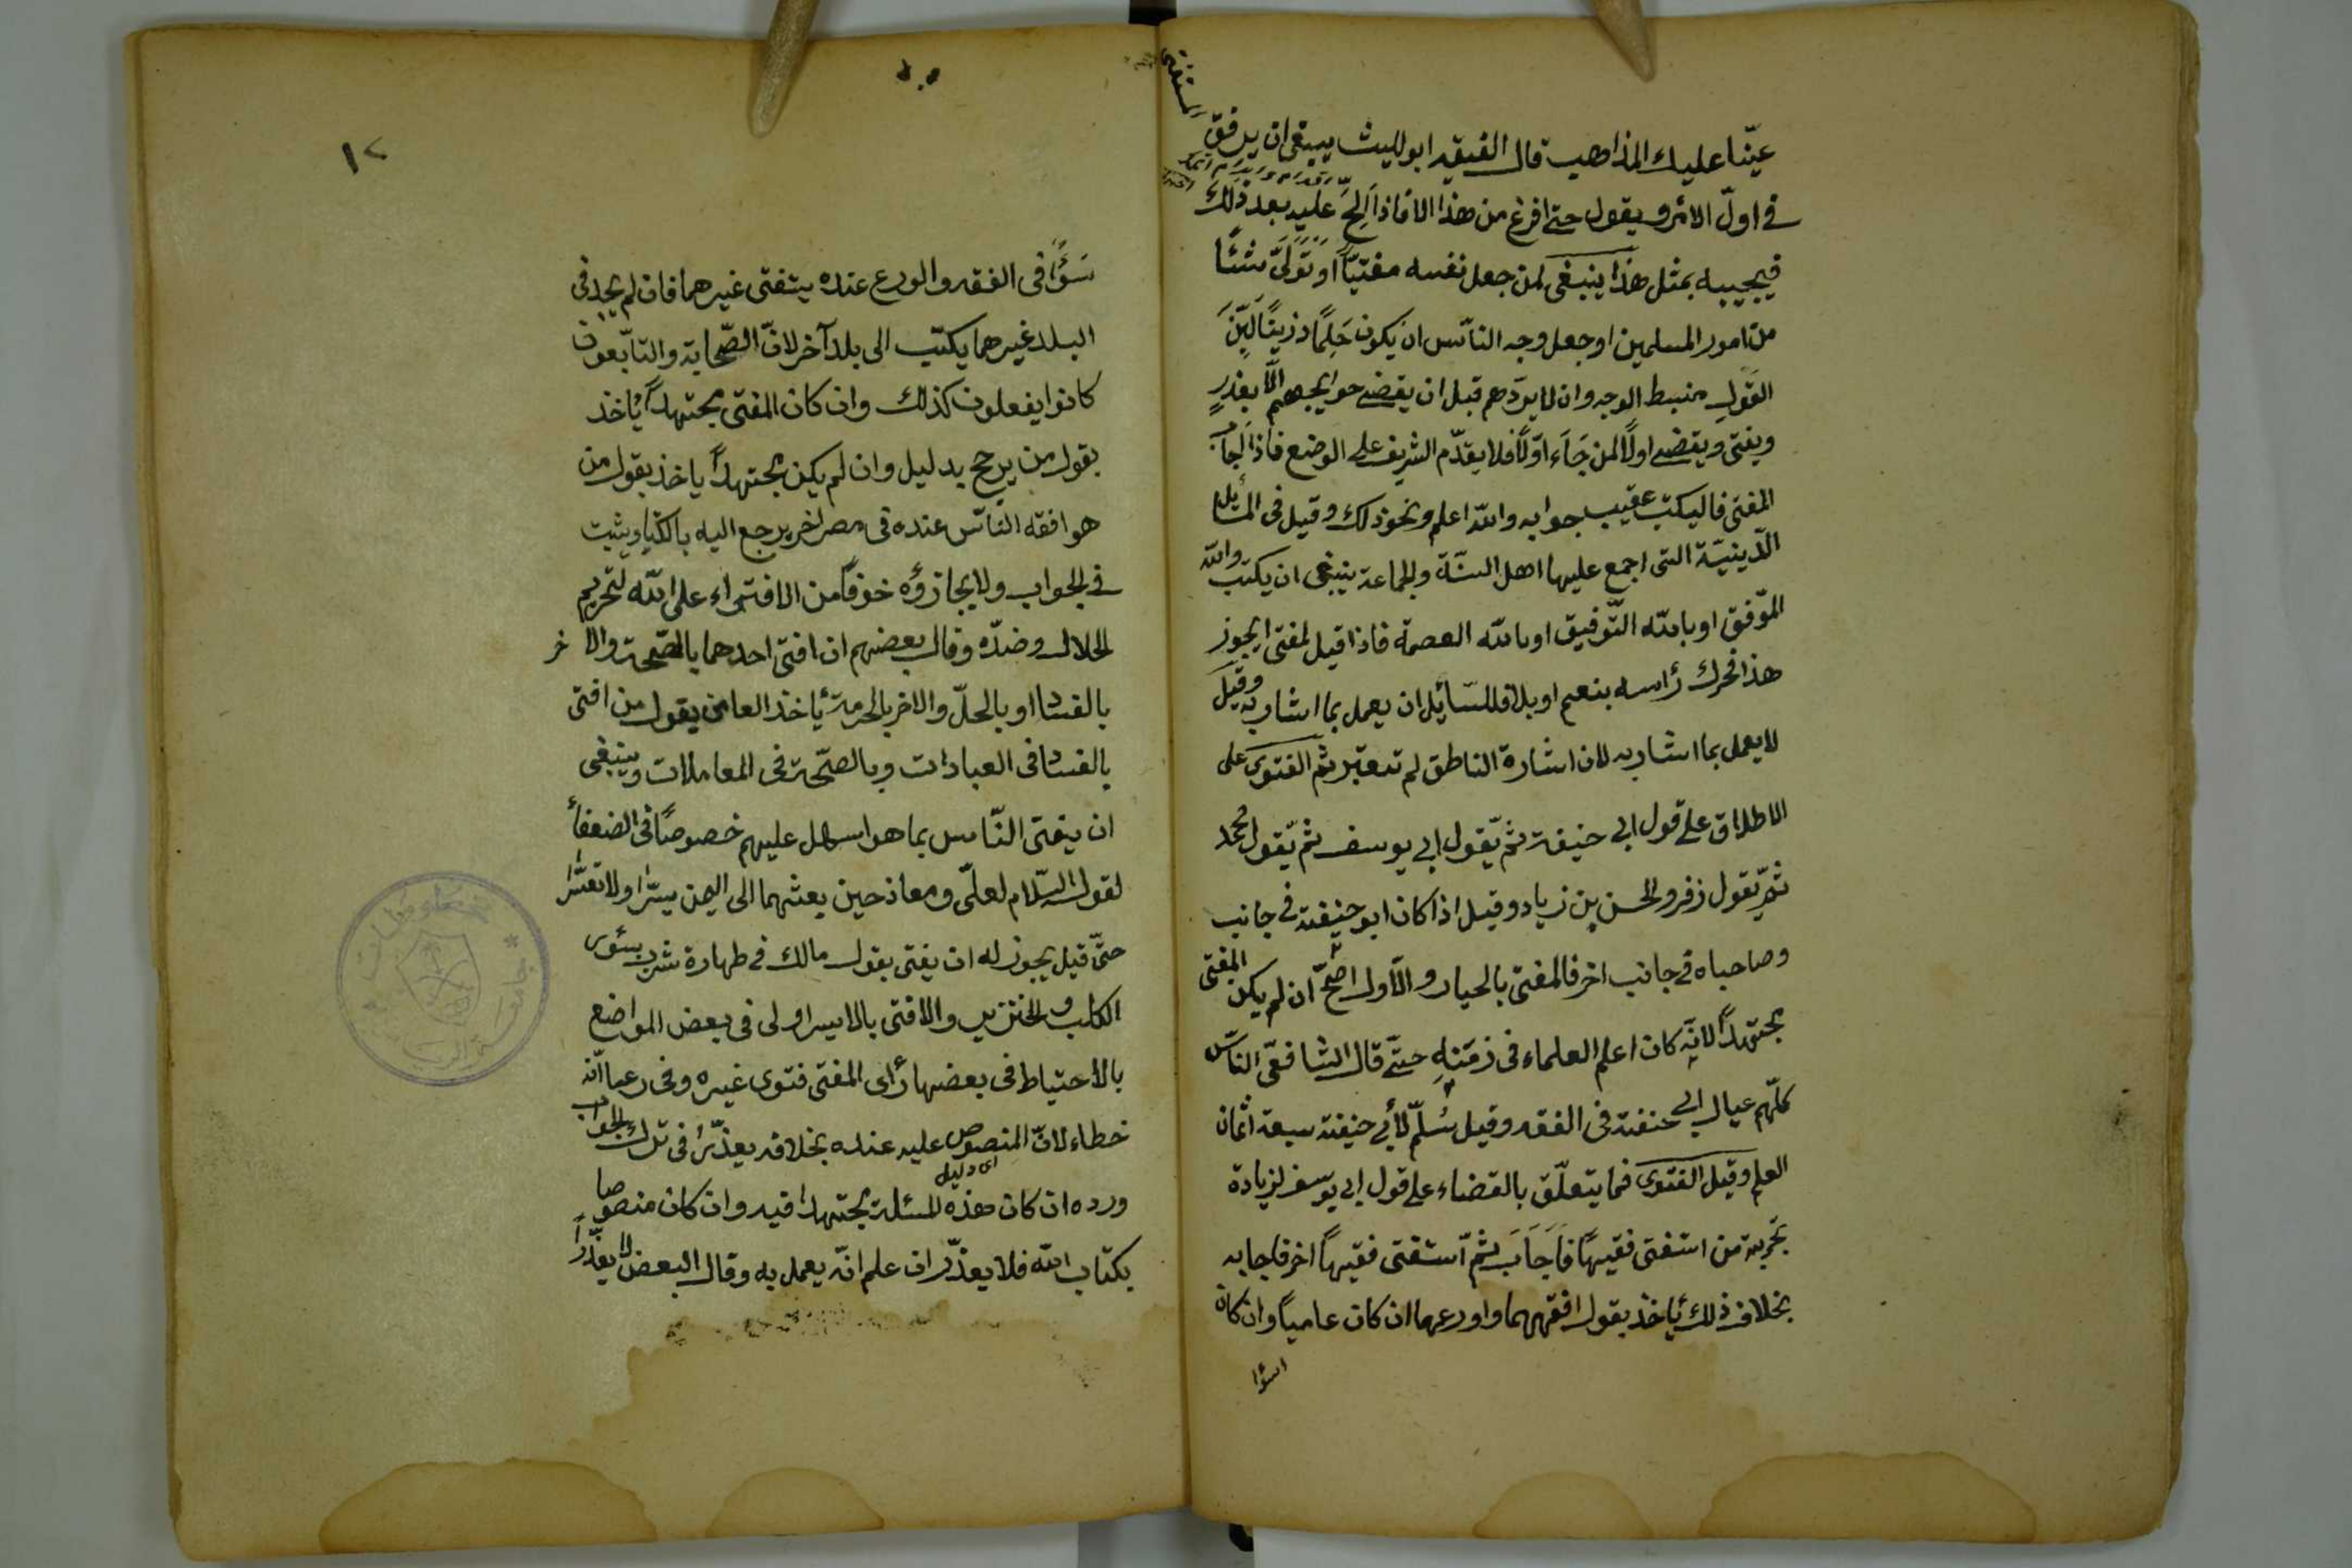 عيّنا عليك المذاهب قال الفيقه ابو لليث يبنغى ان يرفق
المستفتى
فى اول الامر ويقول حتى افرغ من هذا الا فاذا اَلَحَّ عليه بعد ذلك
فيجيبه بمثل هذا ينبغى لمن جعل نفسه مفتيّاً او تَوَلَّىَ شئًا
من امور المسلمين او جعل وجه النّاس ان يكون حَلِمًا رزينًا لَيِّنَ
القَوَلِ منبسط الوجه وان لا يردّهم قبل ان يقضى حوايجهم الّا بعذرٍ
ويفتى ويقضى اولًا لمن جَاَء اوّلًا فلا يقدّم الشريف على الوضع فاذا اَجَاب
المفتى فاليكتب عقيب جوابه والله اعلم ونحو ذلك وقيل فى المسائل
الدّينيّة التى اجمع عليها اهل السنّة والجماعة ينبغى ان يكتب والله
الموّفق او بالله التّوفيق او بالله العصمة فاذا قيل لمفتى ايجوز
هذا فحرك رأسه بنعم او بلا فللسّائل ان يعمل بما اشار به وقيل
لا يعمل بما اشار به لان اشارة الناطق لم تعتبر ثم الفتوى على
الاطلاق على قول ابى حنيفة ثمّ بقول ابى يوسف ثم بقول محمد
ثمّ بقول زفر والحسن بن زياد وقيل اذا كان ابو حنيفة فى جانب
وصاحباه فى جانب اخر فالمفتى بالحيار والاوّل اصحّ ان لم يكن المفتى
مجتهدًا لانّه كان اعلم العلماء فى زمَنِهِ حتّى قال الشافعّى النّاس
كلّهم عيال ابى حنفة فى الفقه وقيل سُلّم لأبى حنيفة سبعة اثمان
العلم وقيل الفتوى فما يتعلّق بالقضاء على قول ابى يوسف لزيادة
تجَربة من استفتى فقيهًا فَاَجَاَبَ ثمّ استفتى فقيهاً اخر فاجابه
بخلاف ذلك يأخذ بقول افقههما واورعهما ان كان عامياً وان كان
اسؤا
١٢
سَوًَا فى الفقه والورع عنده يتفتى غيرهما فان لم يجد فى
البلد غيرهما يكتب الى بلد آخر لانّ الصّحابة والتابّعون
كانوا يفعلون كذلك وان كان المفتى مجتهداً يأخذ
بقول من يرجح بدليل وان لم يكن مجتهداً ياخذ بقول من
هو افقه النّاس عنده فى مصر اخر يرجع اليه بالكتاب ويثبت
فى الجواب ولا يجازؤه خوفًا من الافتراء على الله لتحريم
الحلال وضدّه وقال بعضهم ان افتى احدهما بالصّحة والاخر
بالفسا او بالحلّ والاخر بالحرمة يأخذ العامى بقول من افتى
بالفسا فى العبادات وبالصّحة فى المعاملات وينبغى
ان يفتى النّاس بما هو اسهل عليهم خصوصًا فى الضعفأ
لقول السّلام لعلّى ومعاذ حين بعثهما الى اليمن يسّرا ولا تعسّرا
حتّى قيل يجوز له ان يفتى بقول مالك فى طهارة شرب سئور
الكلب والخنزير والافتى بالايسر اولى فى بعض المواضع
بالاحتياط فى بعضها رأى المفتى فتوى غيره وفى زعمه انّه
خطاء لانّ المنصوص عليه عنده بخلافه يعذّر فى ترك الجواب
اى دليل
ورده ان كان هذه المسئلة مجتهدا فيه وان كان منصوصا
بكتاب الله فلا يعذّر ان علم انّه يعمل به وقال البعض لا يعذّر